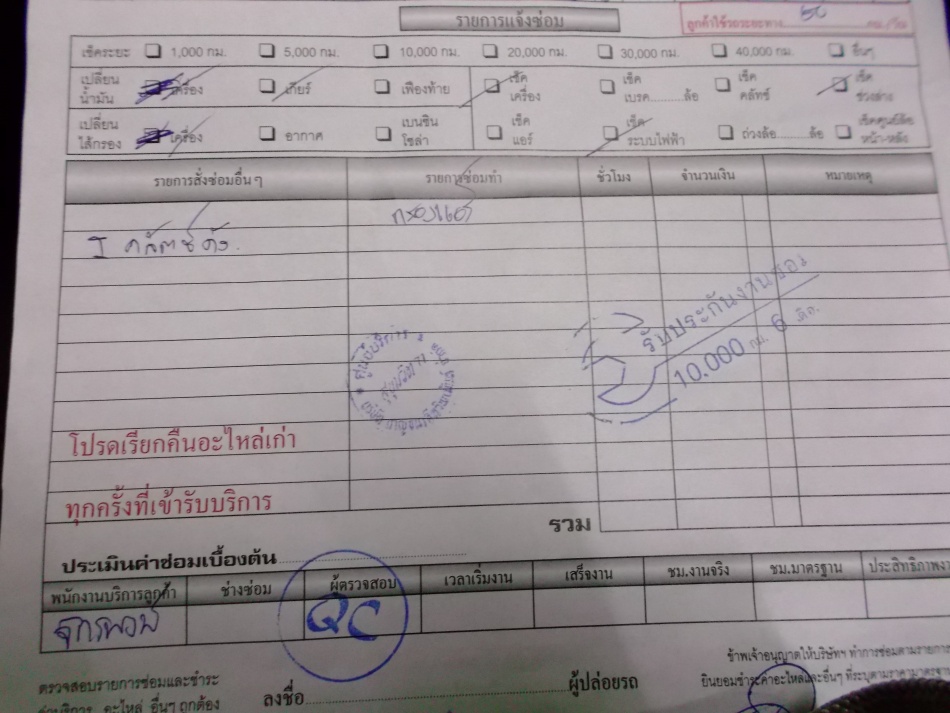 รายการแจ้งซ่อม
ลูกค้าใช้รถระยะทาง 60 กม./วัน
เช็คระยะ 1,000 กม. 5,000 กม. 10,000 กม. 20,000 กม. 30,000 กม. 40,000 กม. อื่นๆ
เปลี่ยนน้ำมัน เครื่อง เกียร์ เฟืองท้าย เช็คเครื่อง เช็คเบรค..........ล้อ เช็คคลัทช์ เช็คช่วงล่าง
เปลี่ยนไส้กรอง เครื่อง อากาศ เบนซินโซล่า เช็คแอร์ เช็คระบบไฟฟ้า ถ่วงล้อ..........ล้อ เช็คศูนย์ล้อหน้า-หลัง
รายการสั่งซ่อมอื่นๆ รายการซ่อมทำ ชั่วโมง จำนวนเงิน หมายเหตุ
กรองแอร์
คลัตช์ดัง
รับประกันงานซ่อม
10,000 กม. 6 เดือน
ศูนย์บริการ
โปรดเรียกคืนอะไหล่เก่า
ทุกครั้งที่เข้ารับบริการ
รวม
ประเมินค่าซ่อมเบื้องต้น
พนักงานบริการลูกค้า ช่างซ่อม ผู้ตรวจสอบ เวลาเริ่มงาน เสร็จงาน ชม.งานจริง ชม.มาตรฐาน ประสิทธิภาพงา
QC
ตรวจสอบรายการซ่อมและชำระ
ค่าบริการ อะไหล่ อื่นๆ ถูกต้อง
ลงชื่อ ผู้ปล่อยรถ
ข้าพเจ้าอนุญาตให้บริษัทฯ ทำการซ่อมตามรายการ
ยินยอมชำระค่าอะไหล่และอื่นๆ ที่ระบุตามราคามาตรฐาน